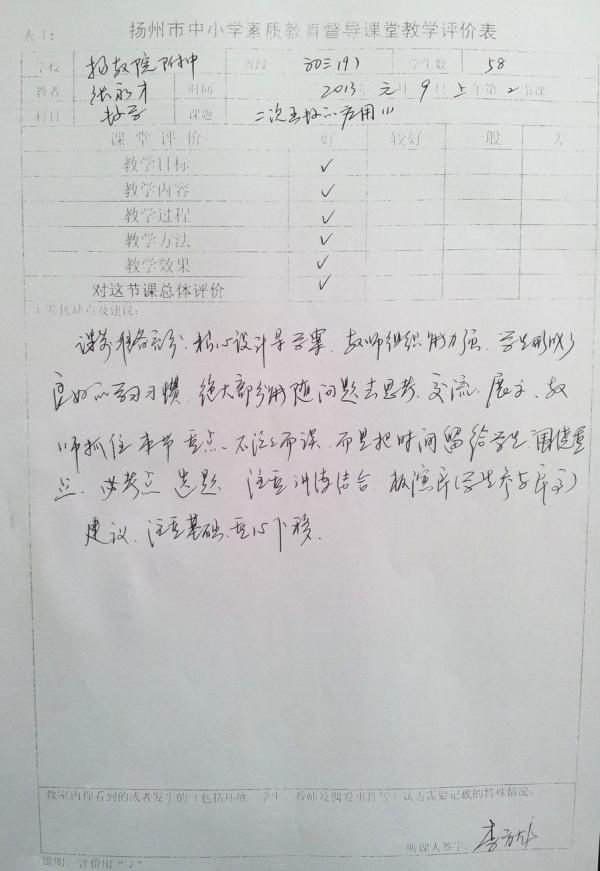 表1: 扬州市中小学素质教育督导课堂教学评价表
学校 扬教院附中 班级 初三(9) 学生数 58
教者 张永才 时间 2013年 元月 9日 上午第 2 节课
科目 数学 课题 二次函数的应用(1)
课堂评价 好 较好 一般 差
教学目标 ✓
教学内容 ✓
教学过程 ✓
教学方法 ✓
教学效果 ✓
对这节课总体评价 ✓
主要优缺点及建议:
课前准备充分、精心设计导学案、教师组织能力强、学生形成了
良好的学习习惯、绝大部分能随问题去思考、交流、展示、教
师抓住本节重点、不 而误、而是把时间留给学生、围绕重
点、必考点 选题 注重讲练结合、板演序(学生参与 )
建议、注重基础、重心下移.
教室内你看到的或者发生的(包括环境、学生、教师及偶发事件等)认为需要记载的特殊情况:
听课人签字:
说明: 评价用“✓”